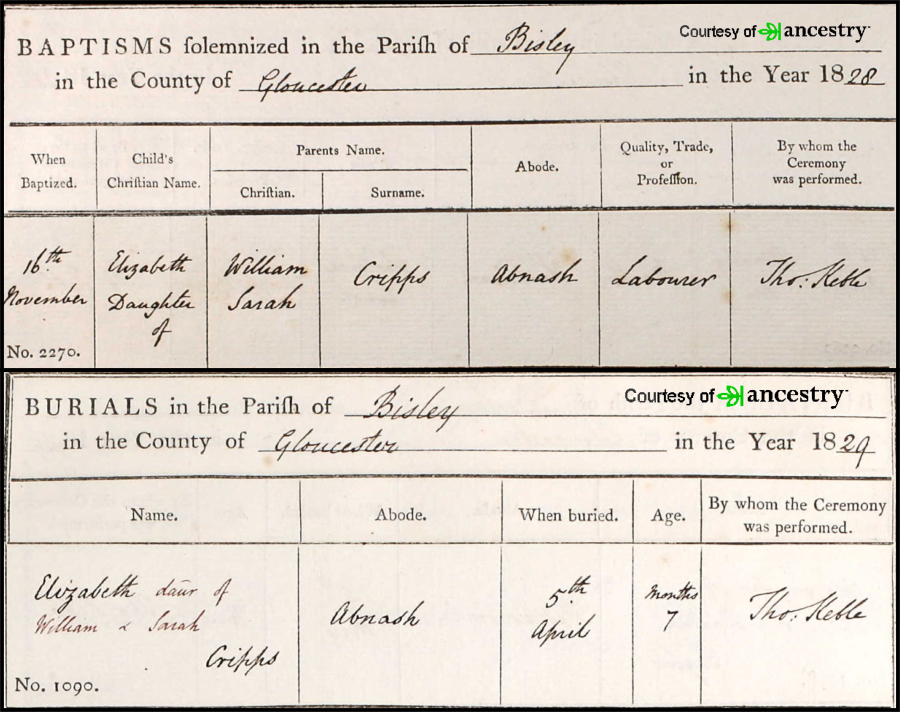 BAPTISMS solemnized in the Parish of Bisley
Courtesy of ancestry
in the County of Gloucester in the Year 1828
When Baptized.
Child's Christian Name.
Parents Name.
Christian.
Surname.
Abode.
Quality, Trade, or Profession.
By whom the Ceremony was performed.
16th November
Elizabeth Daughter of
William Sarah
Cripps
Abnash
Labourer
Tho: Keble
No. 2270.
BURIALS in the Parish of Bisley
Courtesy of ancestry
in the County of Gloucester in the Year 1829
Name.
Abode.
When buried.
Age.
By whom the Ceremony was performed.
Elizabeth daur of
William & Sarah
Cripps
Abnash
5th April
Months 7
Tho: Keble
No. 1090.